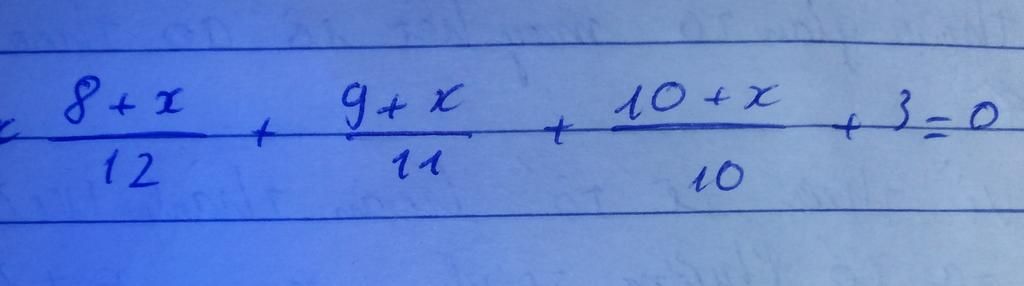 8 + x / 12 + 9 + x / 11 + 10 + x / 10 + 3 = 0